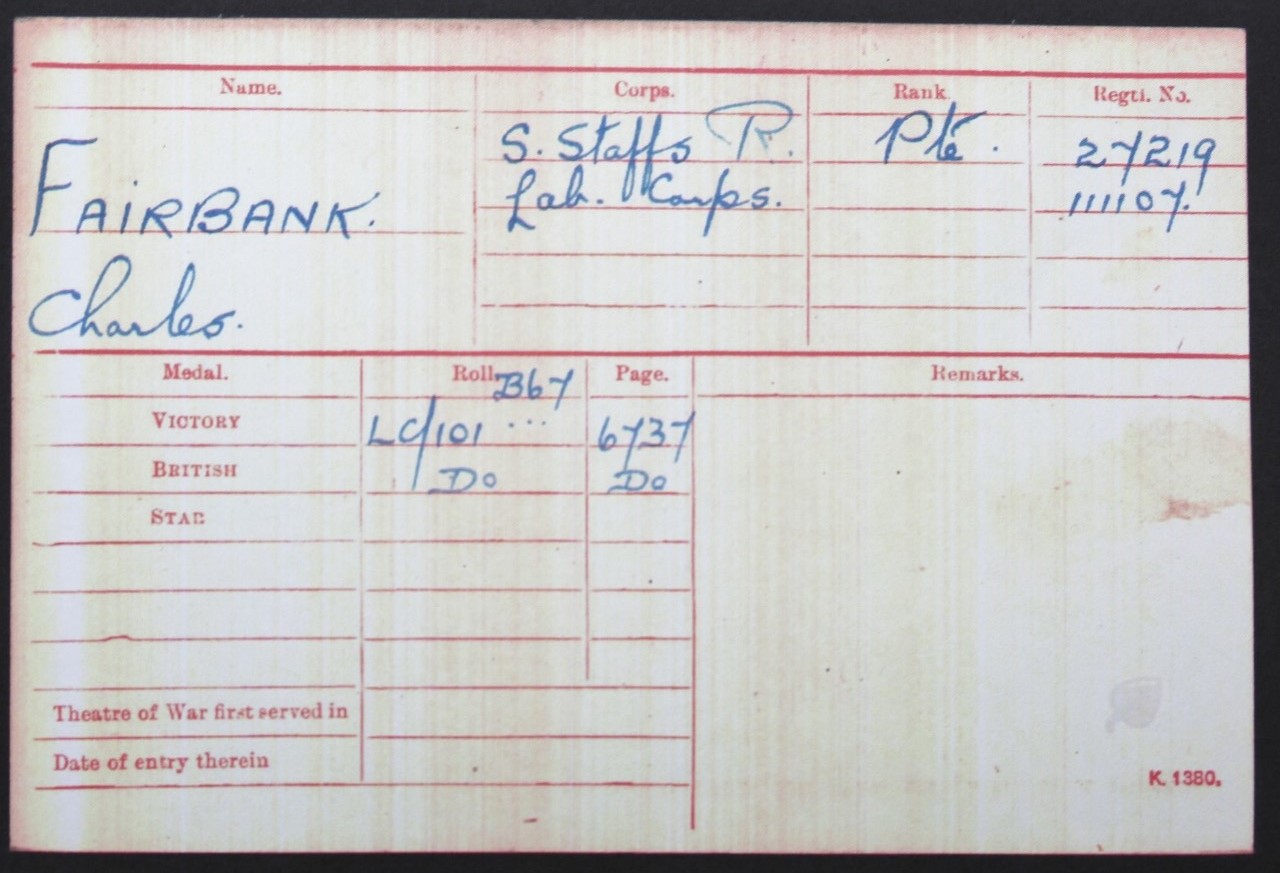 Name. Corps. Rank Regtl. No.
FAIRBANK. S. Staffs R. Pte. 27219
Lab. Corps. 111107.
Charles.
Medal. Roll B67 Page. Remarks.
VICTORY LC/101 ... 6737
BRITISH Do Do
STAR
Theatre of War first served in
Date of entry therein
K. 1380.